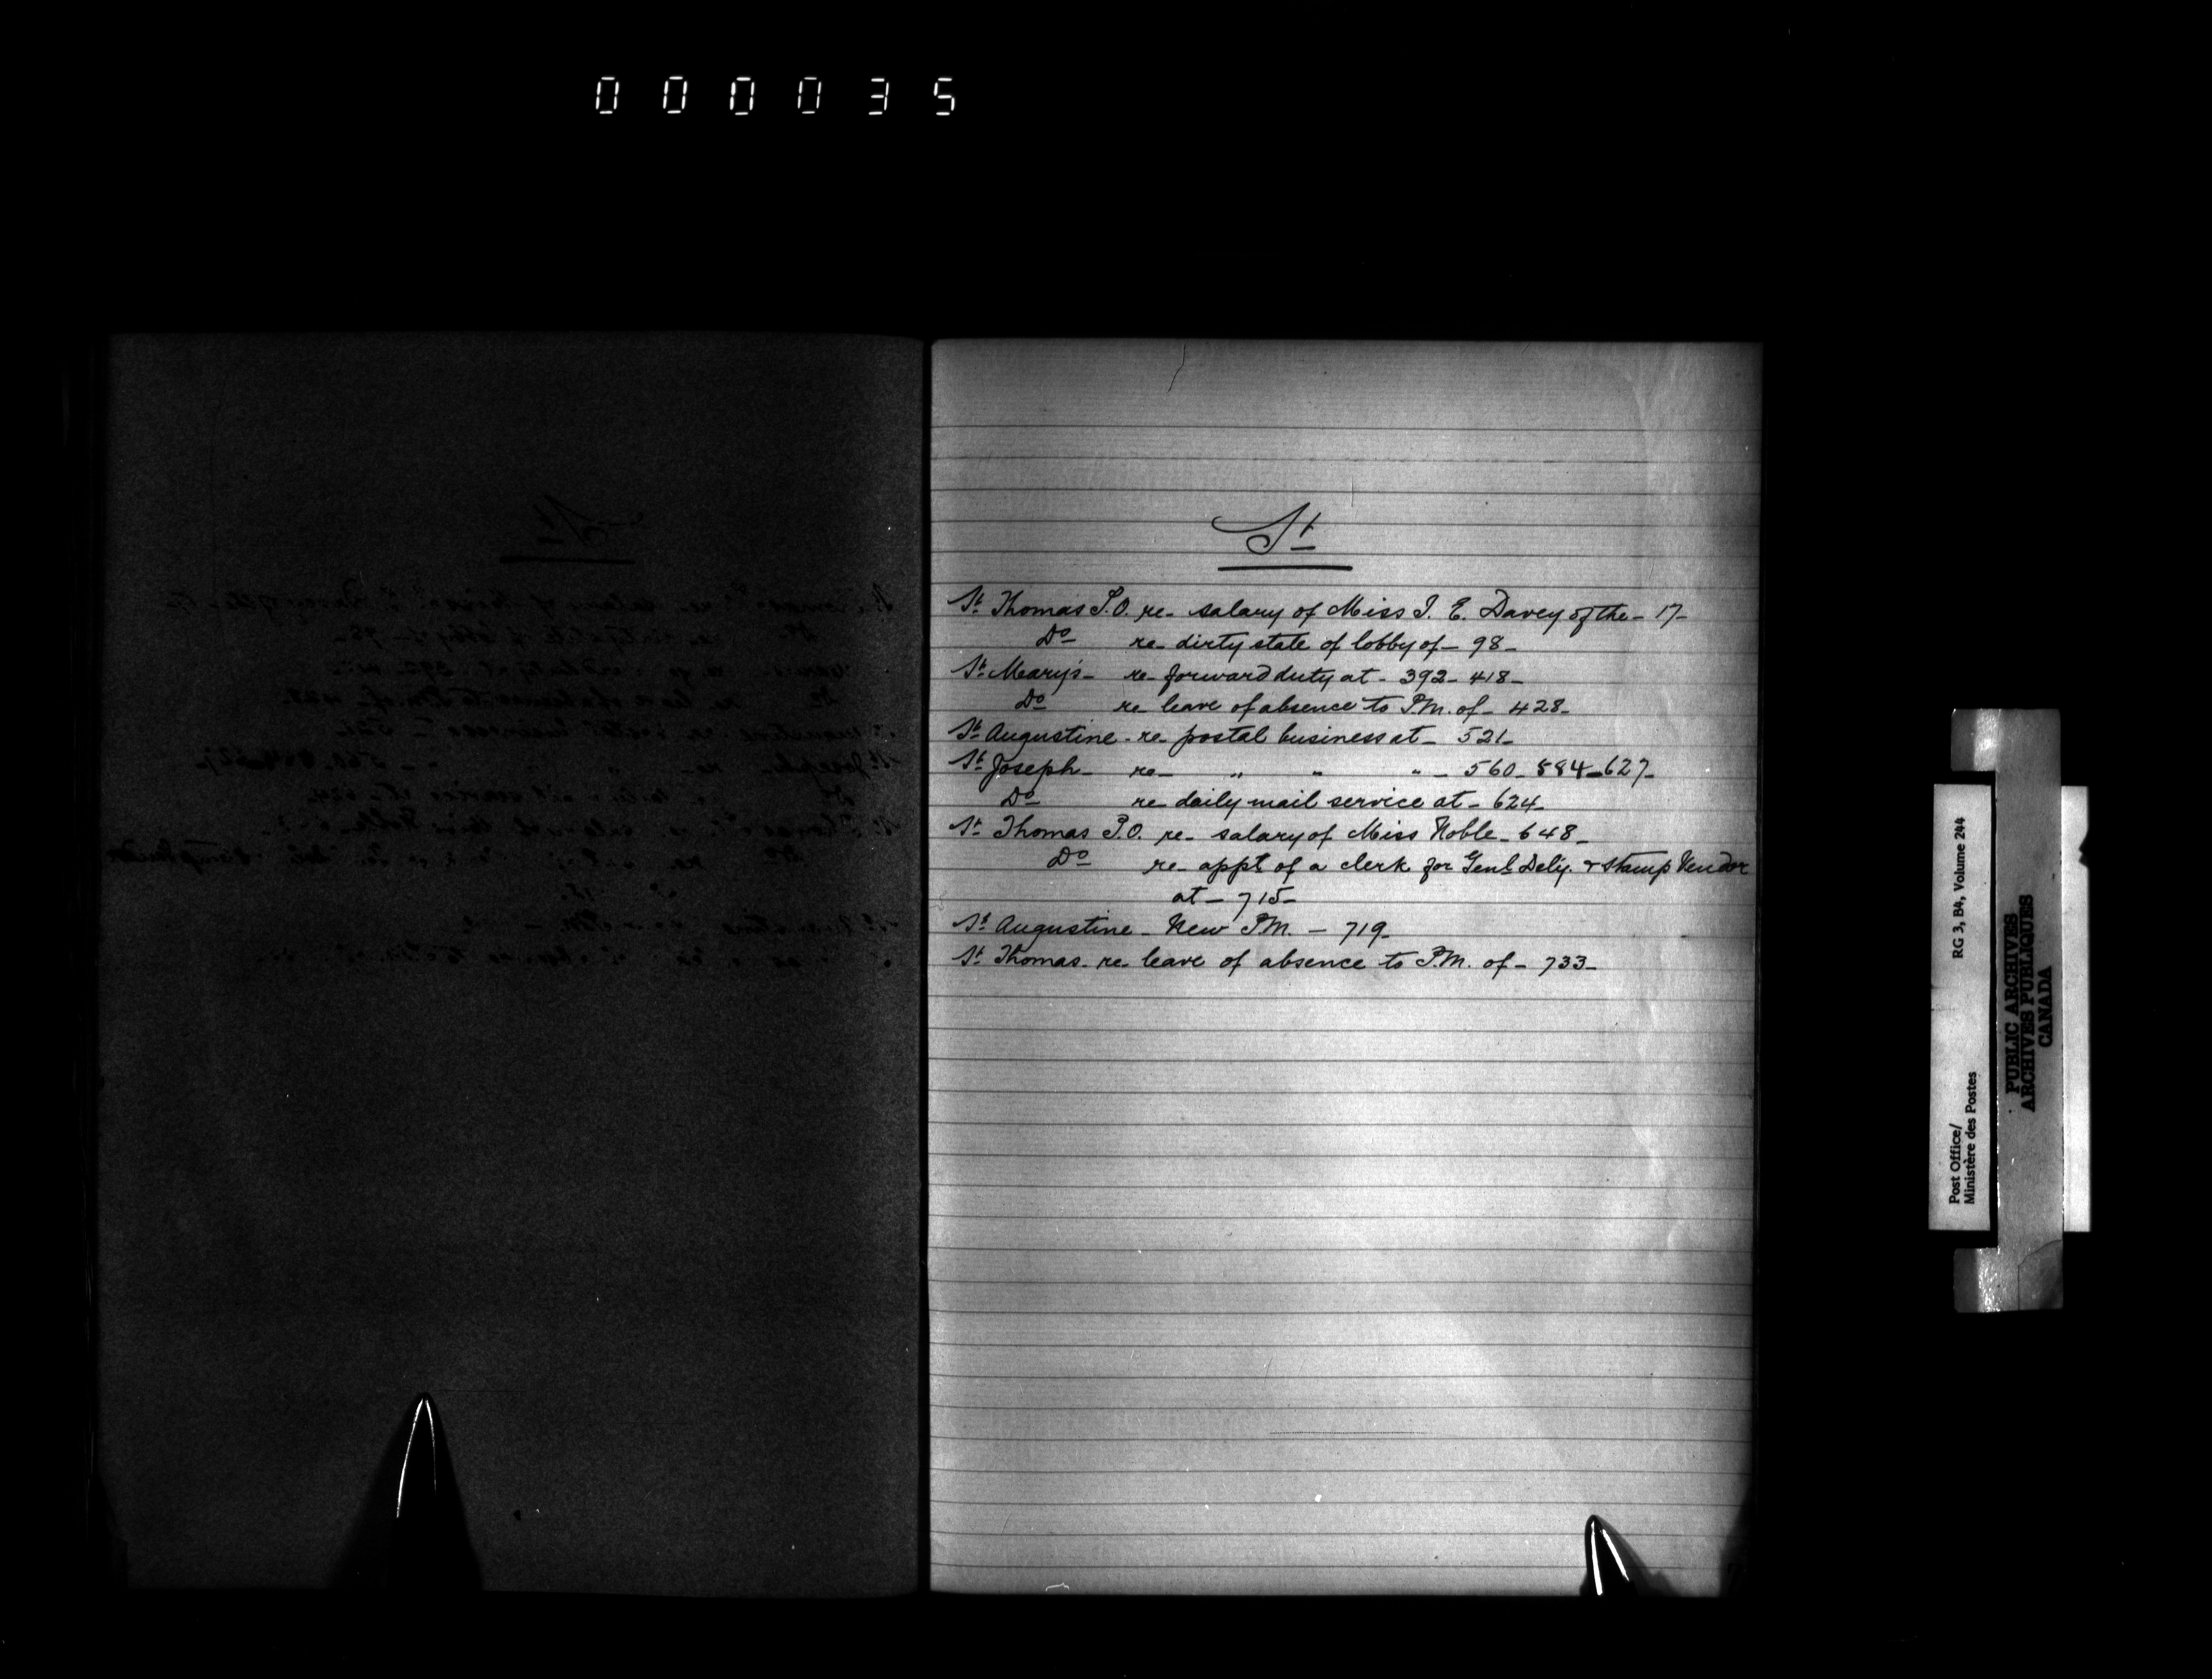 000035
St
St Thomas P.O. re- salary of Miss I. E. Davey of the - 17-
Do re- dirty state of lobby of - 98-
St Mary's- re- forward duty at - 392- 418-
Do re leave of absence to P.M. of- 428-
St Augustine- re- postal business at- 521-
St Joseph- re- " " " - 560- 584- 627-
Do re- daily mail service at- 624-
St Thomas P.O. re- salary of Miss Noble- 648-
Do re- appt of a clerk for Genl Dely. & Stamp Vendor
at- 715-
St Augustine- New P.M. - 719-
St Thomas- re- leave of absence to P.M. of- 733-
Post Office/
Ministère des Postes
RG 3, B4, Volume 244
PUBLIC ARCHIVES
ARCHIVES PUBLIQUES
CANADA